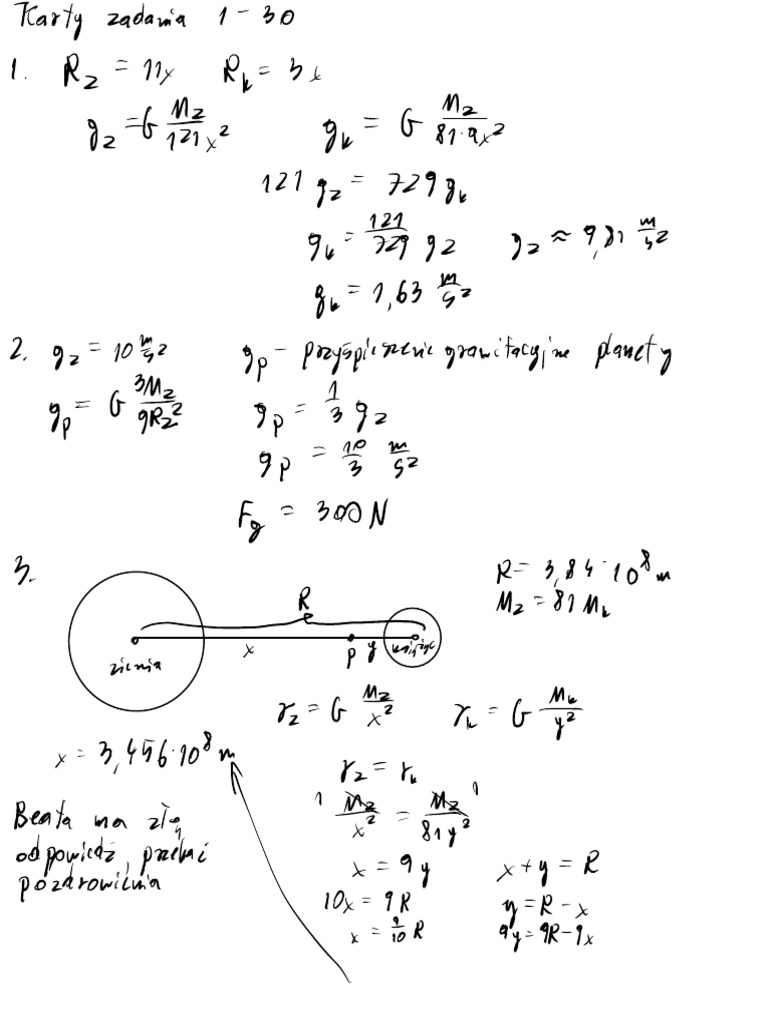 Karty zadania 1-30
1. R_z = 11x R_k = 3x
g_z = G M_z/121x² g_k = G M_z/81·9x²
121 g_z = 729 g_k
g_k = 121/729 g_z g_z ≈ 9,81 m/s²
g_k = 1,63 m/s²
2. g_z = 10 m/s² g_p - przyśpieszenie grawitacyjne planety
g_p = G 3M_z/9R_z² g_p = 1/3 g_z
g_p = 10/3 m/s²
F_g = 300 N
3.
R = 3,84·10⁸ m
M_z = 81 M_k
R
ziemia x p y księżyc
γ_z = G M_z/x² γ_k = G M_k/y²
x = 3,456·10⁸ m
γ_z = γ_k
1 M_z/x² = M_z/81y² 1
Beata ma złą
odpowiedź, przekaż
pozdrowienia
x = 9y x + y = R
10x = 9R y = R - x
x = 9/10 R 9y = 9R - 9x